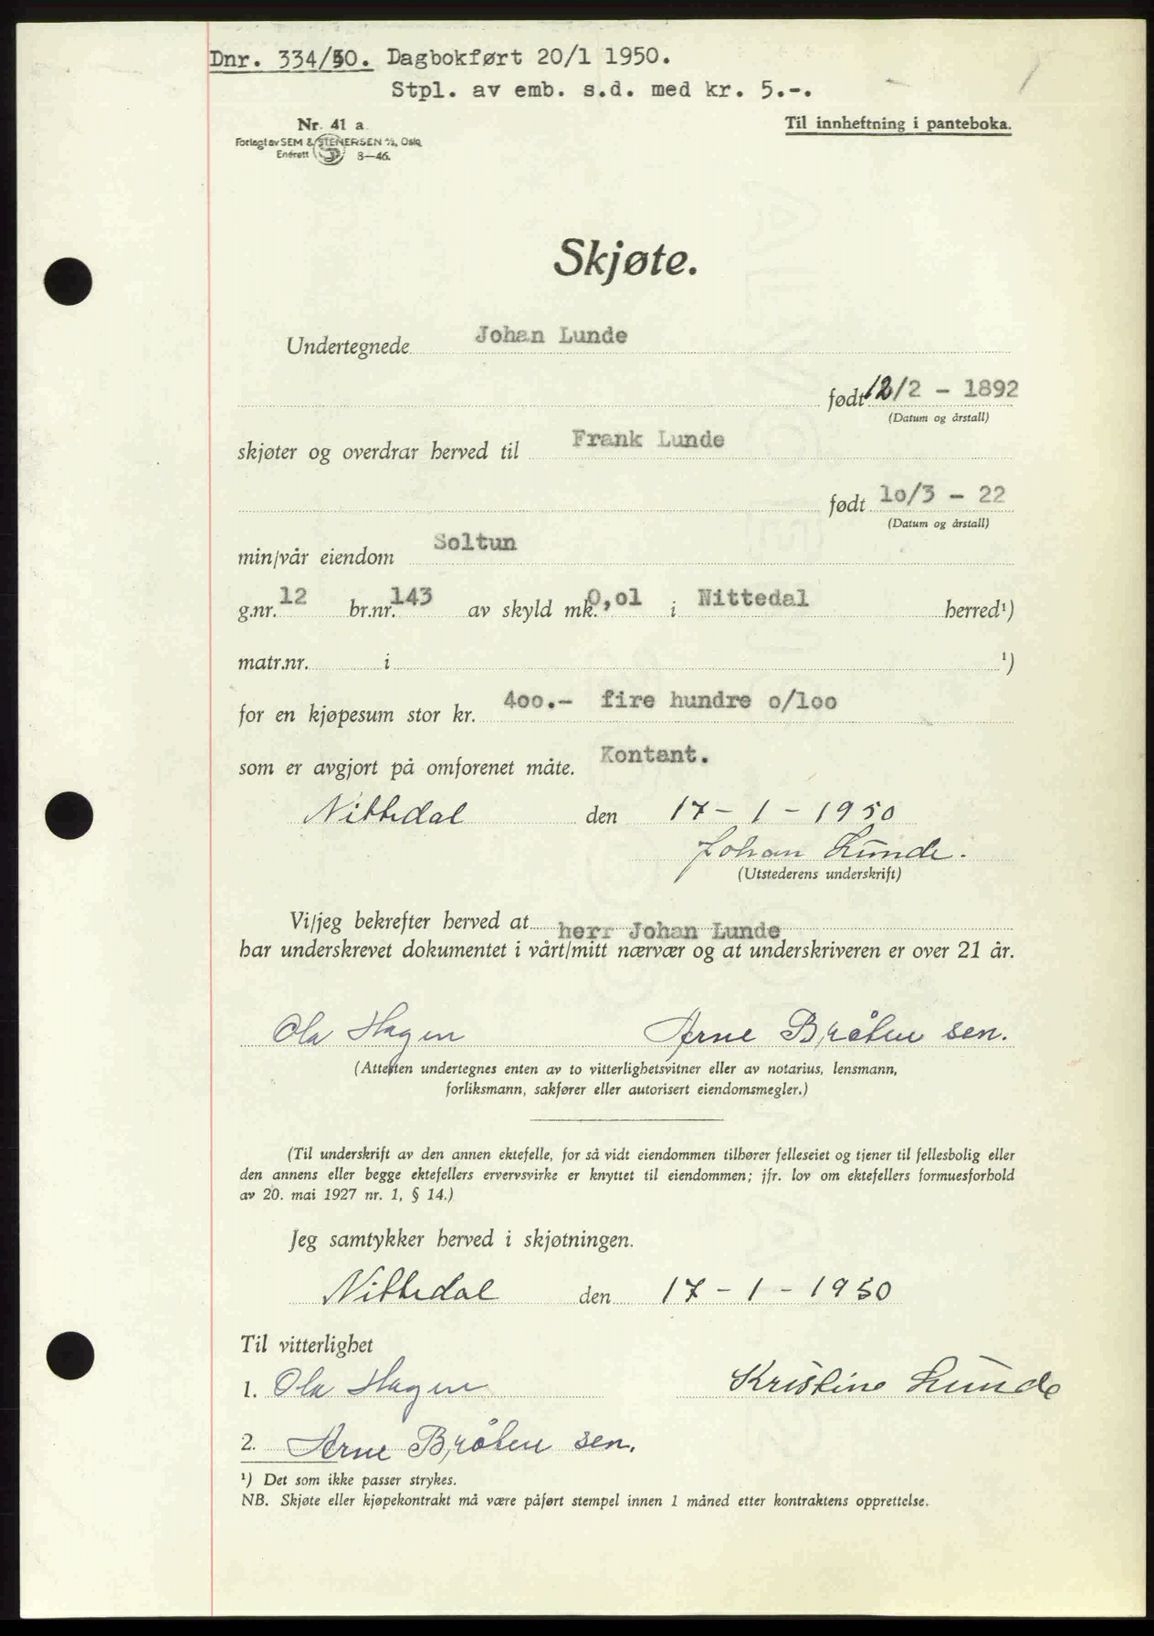 Dnr. 334/50. Dagbokført 20/1 1950.
Stpl. av emb. s.d. med kr. 5.-.
Nr. 41 a
Til innheftning i panteboka.
Forlagt av SEM & STENERSEN A/S, Oslo
Enerett 8—46.
Skjøte.
Undertegnede Johan Lunde
født 12/2 - 1892
(Datum og årstall)
skjøter og overdrar herved til Frank Lunde
født 10/3 - 22
(Datum og årstall)
min/vår eiendom Soltun
g.nr. 12 br.nr. 143 av skyld mk. 0,01 i Nittedal herred¹)
matr.nr. i ¹)
for en kjøpesum stor kr. 400.- fire hundre 0/100
som er avgjort på omforenet måte. Kontant.
Nittedal den 17-1-1950
Johan Lunde.
(Utstederens underskrift)
Vi/jeg bekrefter herved at herr Johan Lunde
har underskrevet dokumentet i vårt/mitt nærvær og at underskriveren er over 21 år.
Ola Hagen Arne Bråten sen.
(Attesten undertegnes enten av to vitterlighetsvitner eller av notarius, lensmann,
forliksmann, sakfører eller autorisert eiendomsmegler.)
(Til underskrift av den annen ektefelle, for så vidt eiendommen tilhører felleseiet og tjener til fellesbolig eller
den annens eller begge ektefellers ervervsvirke er knyttet til eiendommen; jfr. lov om ektefellers formuesforhold
av 20. mai 1927 nr. 1, § 14.)
Jeg samtykker herved i skjøtningen.
Nittedal den 17-1-1950
Til vitterlighet
1. Ola Hagen Kristine Lunde
2. Arne Bråten sen.
¹) Det som ikke passer strykes.
NB. Skjøte eller kjøpekontrakt må være påført stempel innen 1 måned etter kontraktens opprettelse.